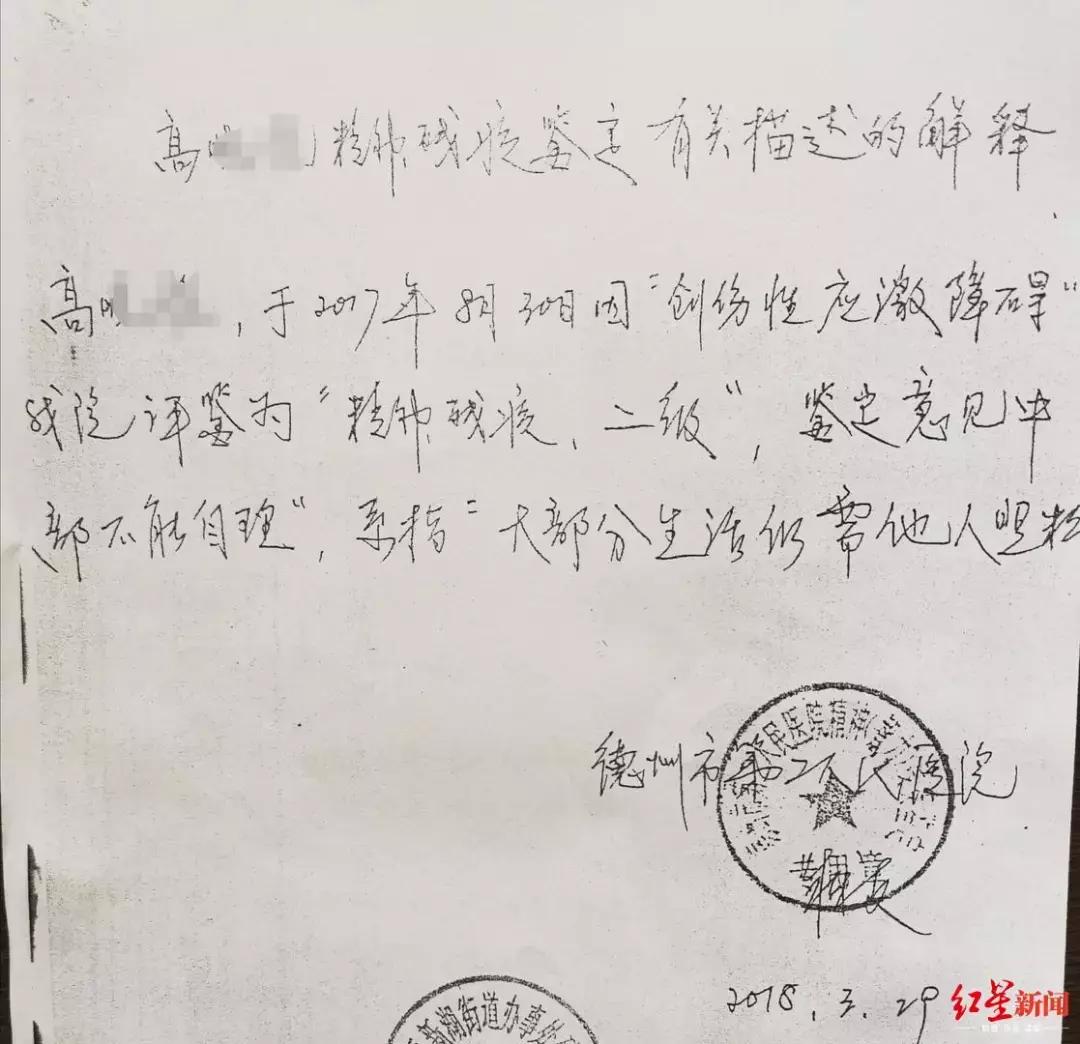 高 精神残疾鉴定有关描述的解释
高 ，于2017年8月30日因“创伤性应激障碍”
我院评鉴为“精神残疾，二级”，鉴定意见中
部不能自理”，系指“大部分生活仍需他人照料
德州市第二人民医院
民医院精神
2018.3.29
新湖街道办事处
红星新闻